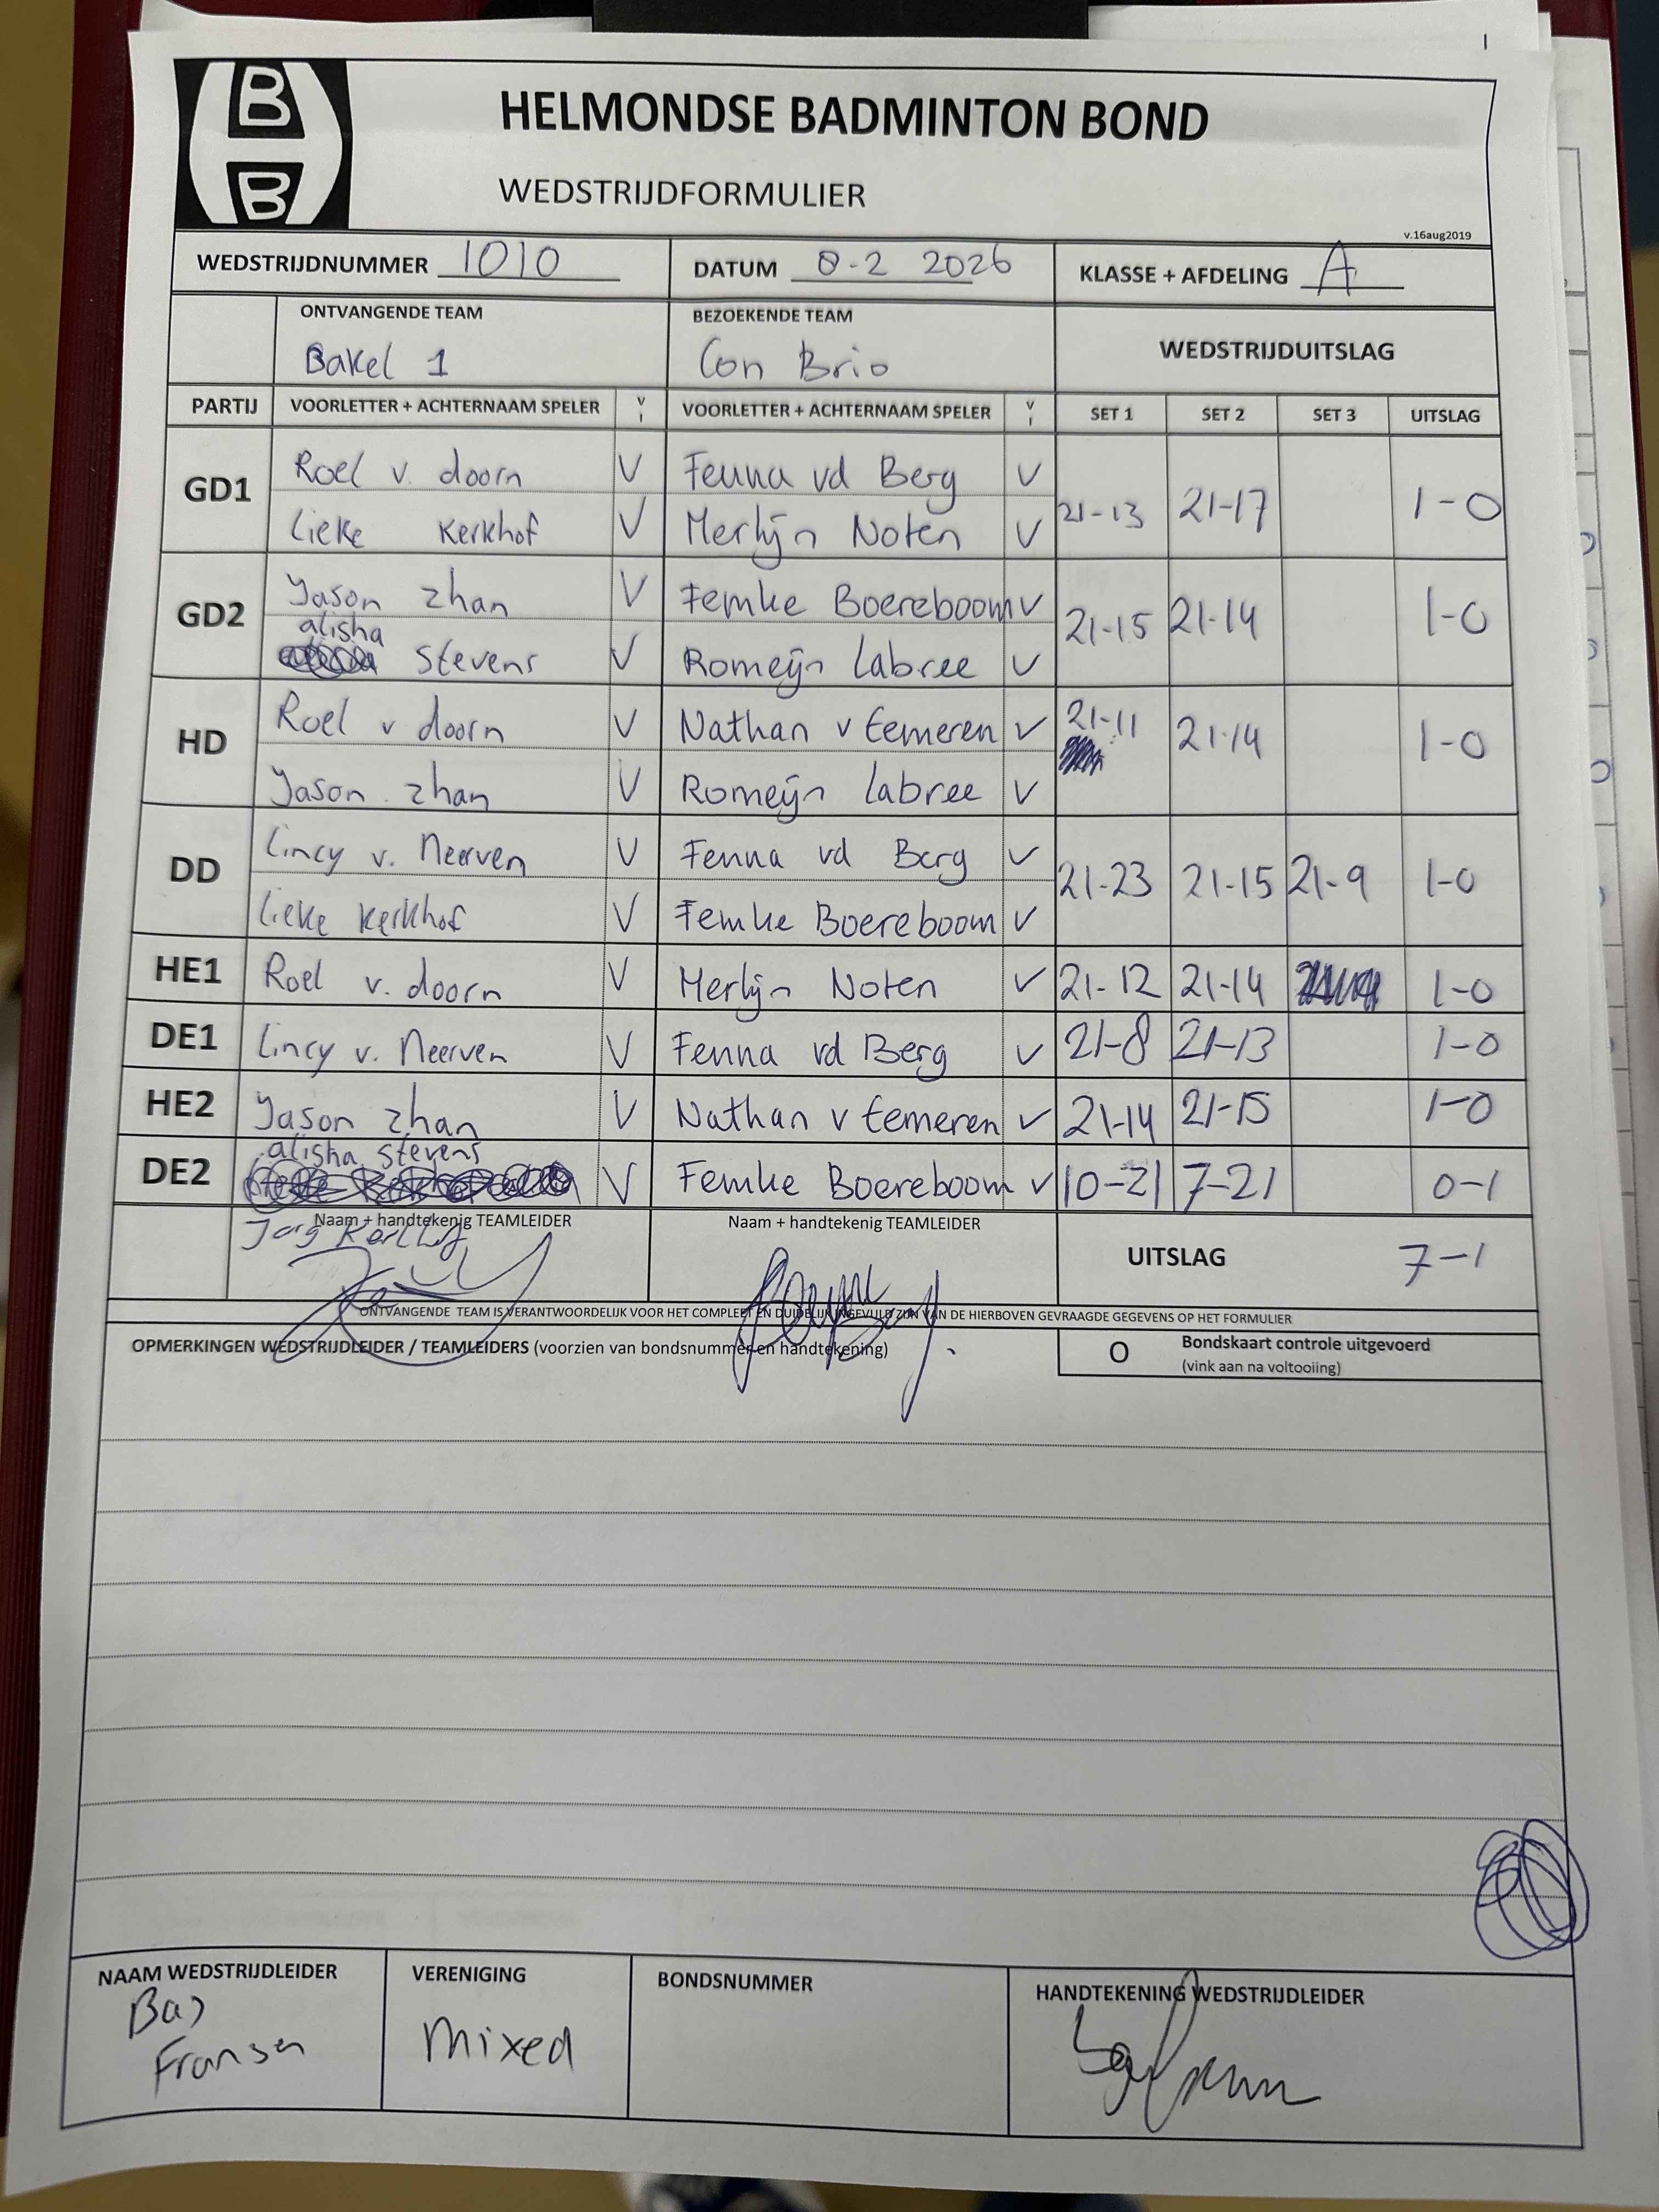 B
B
HELMONDSE BADMINTON BOND
WEDSTRIJDFORMULIER
v.16aug2019
WEDSTRIJDNUMMER 1010 DATUM 8-2 2026 KLASSE + AFDELING A
ONTVANGENDE TEAM BEZOEKENDE TEAM WEDSTRIJDUITSLAG
Bakel 1 Con Brio
PARTIJ VOORLETTER + ACHTERNAAM SPELER V I VOORLETTER + ACHTERNAAM SPELER V I SET 1 SET 2 SET 3 UITSLAG
GD1 Roel v. doorn V Fenna vd Berg V 21-13 21-17 1-0
Lieke Kerkhof V Merlijn Noten V
GD2 Yason zhan V Femke Boereboom V 21-15 21-14 1-0
alisha
stevens V Romeijn Labree V
HD Roel v doorn V Nathan v Eemeren V 21-11 21-14 1-0
Yason zhan V Romeijn Labree V
DD Lincy v. Neerven V Fenna vd Berg V 21-23 21-15 21-9 1-0
Lieke Kerkhof V Femke Boereboom V
HE1 Roel v. doorn V Merlijn Noten V 21-12 21-14 1-0
DE1 Lincy v. Neerven V Fenna vd Berg V 21-8 21-13 1-0
HE2 Yason zhan V Nathan v Eemeren V 21-14 21-15 1-0
DE2 alisha stevens V Femke Boereboom V 10-21 7-21 0-1
Naam + handtekenig TEAMLEIDER Naam + handtekenig TEAMLEIDER UITSLAG 7-1
ONTVANGENDE TEAM IS VERANTWOORDELIJK VOOR HET COMPLEET EN DUIDELIJK INGEVULD ZIJN VAN DE HIERBOVEN GEVRAAGDE GEGEVENS OP HET FORMULIER
OPMERKINGEN WEDSTRIJDLEIDER / TEAMLEIDERS (voorzien van bondsnummer en handtekening) O Bondskaart controle uitgevoerd
(vink aan na voltooiing)
NAAM WEDSTRIJDLEIDER VERENIGING BONDSNUMMER HANDTEKENING WEDSTRIJDLEIDER
Bas
Fransen
Mixed